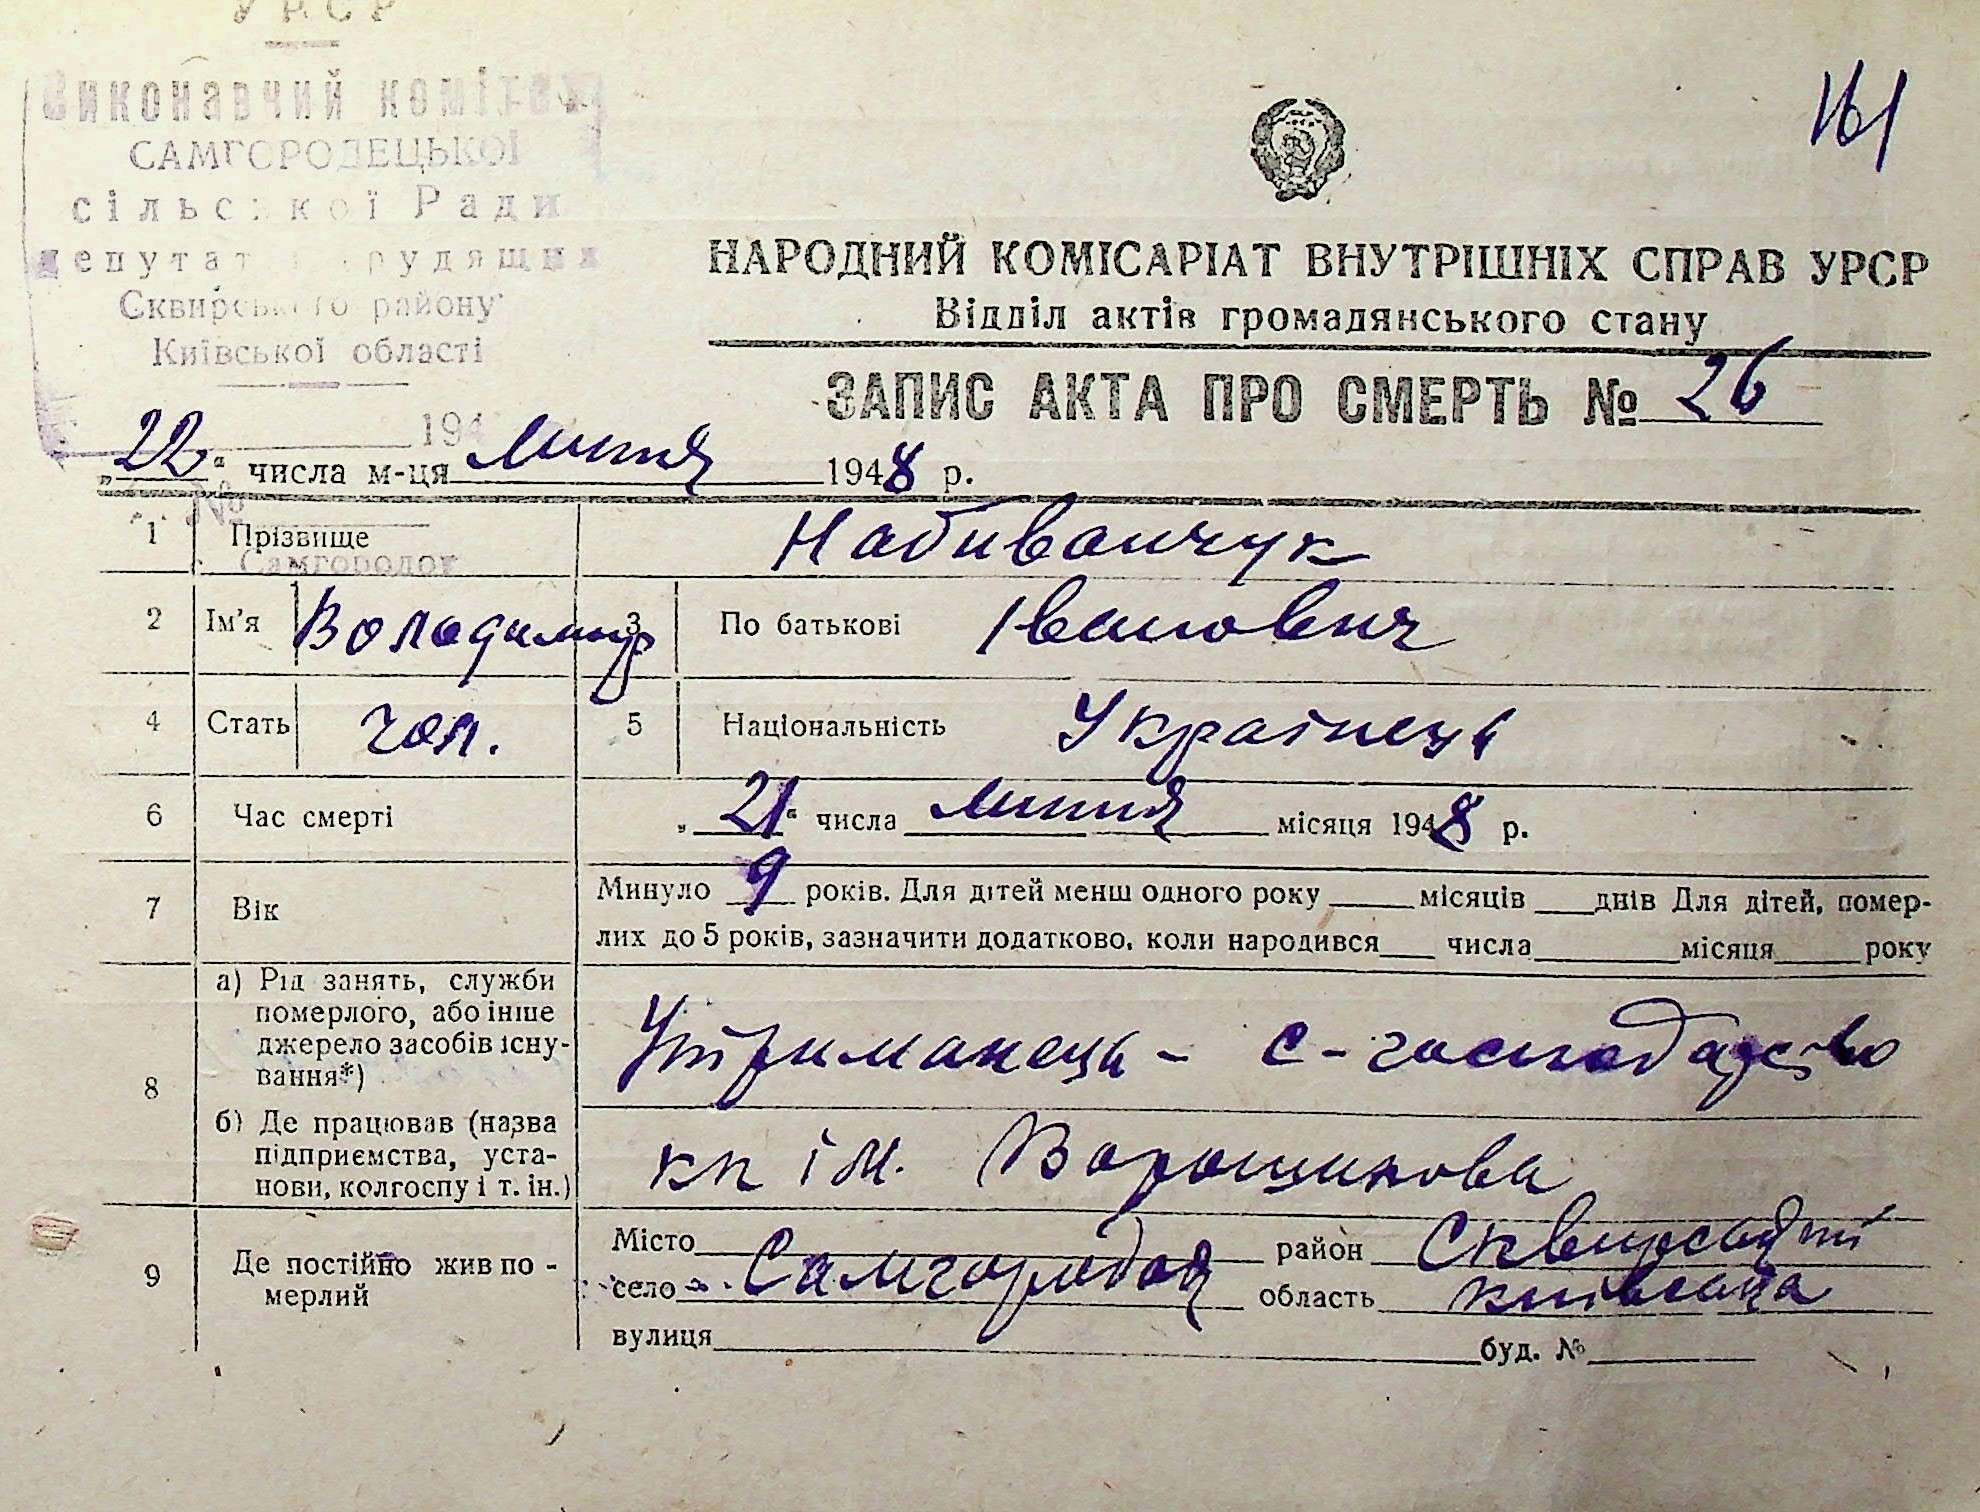 УРСР
Виконавчий комітет
САМГОРОДЕЦЬКОЇ
сільської Ради
депутатів трудящих
Сквирського району
Київської області
194
№
Самгородок
161
НАРОДНИЙ КОМІСАРІАТ ВНУТРІШНІХ СПРАВ УРСР
Відділ актів громадянського стану
ЗАПИС АКТА ПРО СМЕРТЬ № 26
„22“ числа м-ця липня 1948 р.
1 Прізвище Набиванчук
2 Ім'я Володимир 3 По батькові Іванович
4 Стать чол. 5 Національність Українець
6 Час смерті „21“ числа липня місяця 1948 р.
7 Вік Минуло 9 років. Для дітей менш одного року місяців днів Для дітей, помер-
лих до 5 років, зазначити додатково, коли народився числа місяця року
8 а) Рід занять, служби
померлого, або інше
джерело засобів існу-
вання*)
Утриманець - с-господарство
б) Де працював (назва
підприємства, уста-
нови, колгоспу і т. ін.)
кп ім. Ворошилова
9 Де постійно жив по-
мерлий
Місто район Сквирський
село Самгородок область Київська
вулиця буд. №